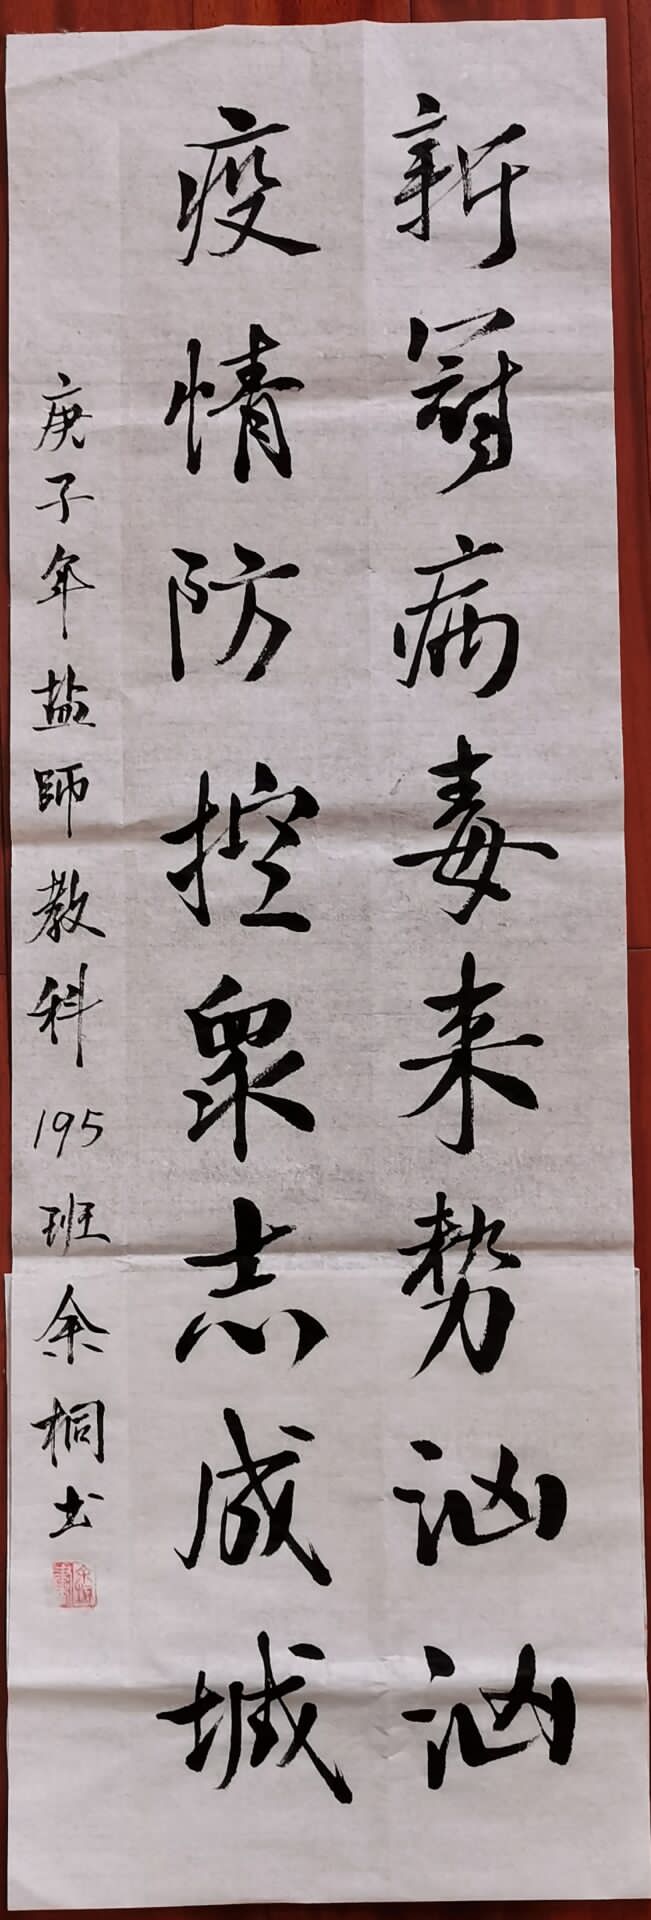 新冠病毒来势讻讻
疫情防控眾志成城
庚子年盐師教科195班余桐书